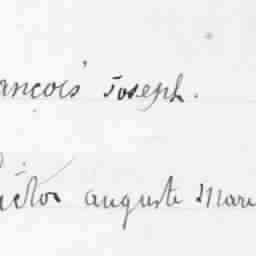 ançois Joseph.
Victor auguste Mari